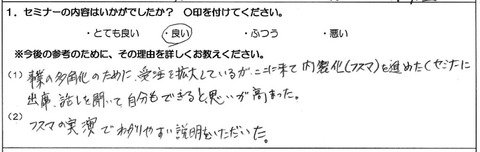 1．セミナーの内容はいかがでしたか？ 〇印を付けてください。
・とても良い ・良い ・ふつう ・悪い
※今後の参考のために、その理由を詳しくお教えください。
(1) 事業の多角化のために、受注を拡大しているが、ここに来て内製化(フスマ)を進めたくセミナーに
出席、話しを聞いて自分もできると思いが高まった。
(2)
フスマの実演でわかりやすい説明をいただいた。